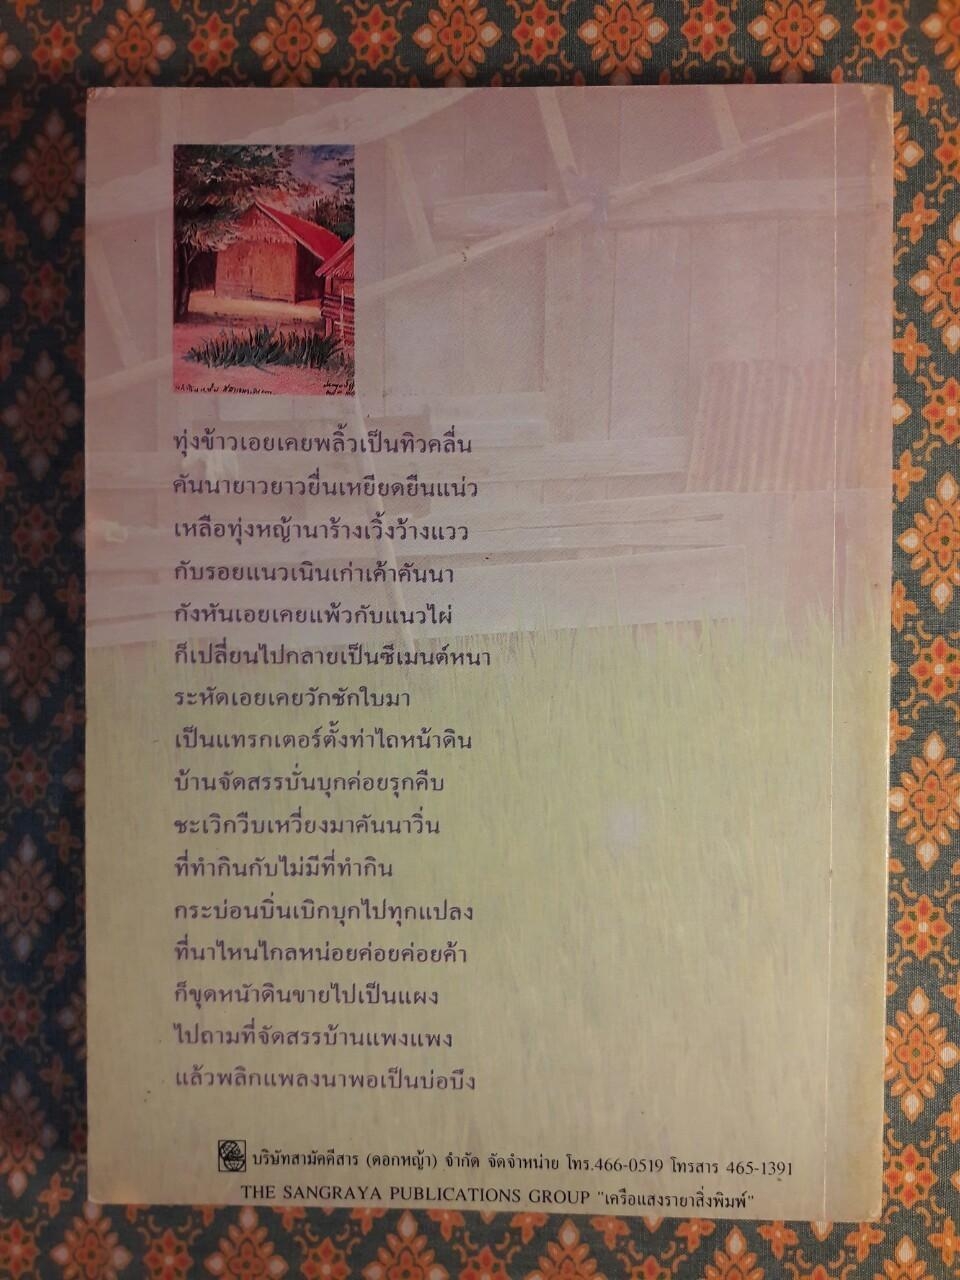 ทุ่งข้าวเอยเคยพลิ้วเป็นทิวคลื่น
คันนายาวยาวยื่นเหยียดยืนแน่ว
เหลือทุ่งหญ้านาร้างเวิ้งว้างแวว
กับรอยแนวเนินเก่าเค้าคันนา
กังหันเอยเคยแพ้วกับแนวไผ่
ก็เปลี่ยนไปกลายเป็นซีเมนต์หนา
ระหัดเอยเคยวักชักใบมา
เป็นแทรกเตอร์ตั้งท่าไถหน้าดิน
บ้านจัดสรรบั่นบุกค่อยรุกคืบ
ชะเวิกวืบเหวี่ยงมาคันนาวิ่น
ที่ทำกินกับไม่มีที่ทำกิน
กระบ่อนบิ่นเบิกบุกไปทุกแปลง
ที่นาไหนไกลหน่อยค่อยค่อยค้า
ก็ขุดหน้าดินขายไปเป็นแผง
ไปถามที่จัดสรรบ้านแพงแพง
แล้วพลิกแพลงนาพอเป็นบ่อบึง
บริษัทสามัคคีสาร (ดอกหญ้า) จำกัด จัดจำหน่าย โทร.466-0519 โทรสาร 465-1391
THE SANGRAYA PUBLICATIONS GROUP "เครือแสงรายาสิ่งพิมพ์"